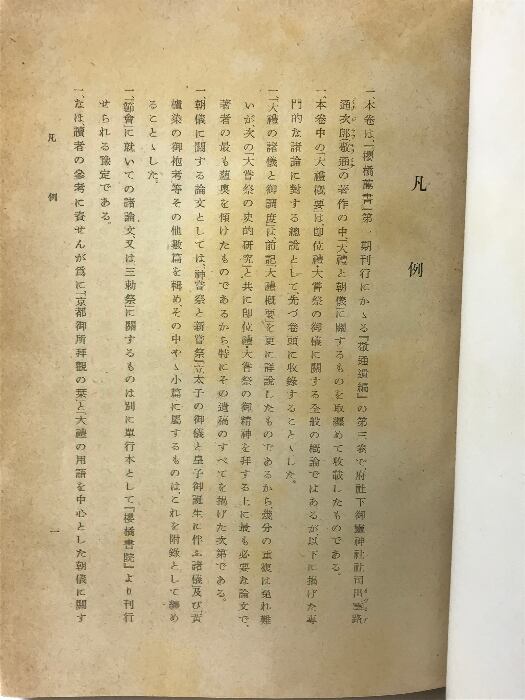 凡例
一、本卷は、『櫻橘叢書』第一期刊行にかゝる『敬通遺編』の第三卷で、府社下御靈神社社司出雲路
通次郎(敬通)の著作の中、「大禮と朝儀」に關するものを取纒めて收載したものである。
一、本卷中の「大禮概要」は、卽位禮・大嘗祭の御儀に關する全般の概論ではあるが、以下に揭げた專
門的な諸論に對する總說として、先づ卷頭に收錄することゝした。
一、「大禮の諸儀と御調度」は前記「大禮概要」を更に詳說したものであるから幾分の重複は免れ難
いが、次の「大嘗祭の史的硏究」と共に卽位禮・大嘗祭の御精神を拜する上に最も必要な論文で、
著者の最も蘊奧を傾けたものであるから、特にその遺稿のすべてを揭げた次第である。
一、朝儀に關する論文としては、「神嘗祭と新嘗祭」「立太子の御儀と皇子御誕生に伴ふ諸儀」及び、「黃
櫨染の御袍考」等その他數篇を輯めその中やゝ小篇に屬するものは、これを附錄として纒め
ることゝした。
一、節會に就いての諸論文、又は三勅祭に關するものは別に單行本として『櫻橘書院』より刊行
せられる豫定である。
一、なほ、讀者の參考に資せんが爲に、「京都御所拜觀の栞」と「大禮の用語を中心とした朝儀に關す
凡例
一